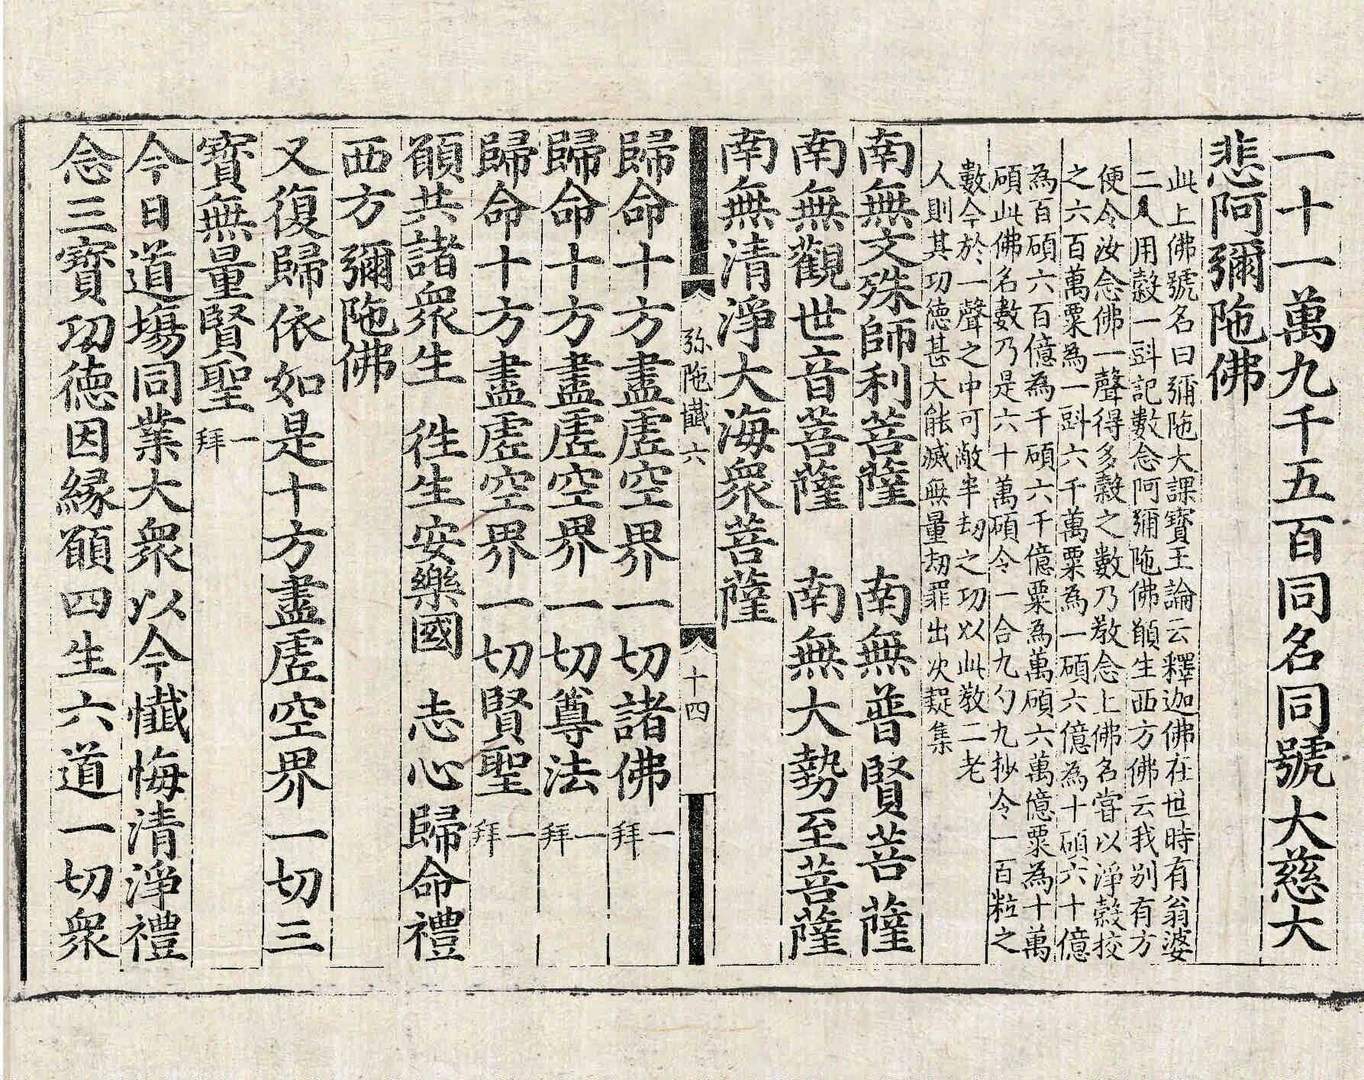 一十一萬九千五百同名同號大慈大
悲阿彌陁佛
此上佛號名曰彌陁大課寶王論云釋迦佛在世時有翁婆
二人用穀一㪷記數念阿彌陁佛願生西方佛云我别有方
便令汝念佛一聲得多穀之數乃敎念上佛名嘗以淨穀校
之六百萬粟為一㪷六千萬粟為一碩六億為十碩六十億
為百碩六百億為千碩六千億粟為萬碩六萬億粟為十萬
碩此佛名數乃是六十萬碩令一合九勺九抄令一百粒之
數今於一聲之中可敵半劫之功以此敎二老
人則其功德甚大能滅無量劫罪出次疑集
南無文殊師利菩薩 南無普賢菩薩
南無觀世音菩薩 南無大勢至菩薩
南無清淨大海衆菩薩
弥陁懺六
十四
歸命十方盡虛空界一切諸佛一拜
歸命十方盡虛空界一切尊法一拜
歸命十方盡虛空界一切賢聖一拜
願共諸衆生 徃生安樂國 志心歸命禮
西方彌陁佛
又復歸依如是十方盡虛空界一切三
寳無量賢聖一拜
今日道塲同業大衆以今懺悔清淨禮
念三寳功德因緣願四生六道一切衆